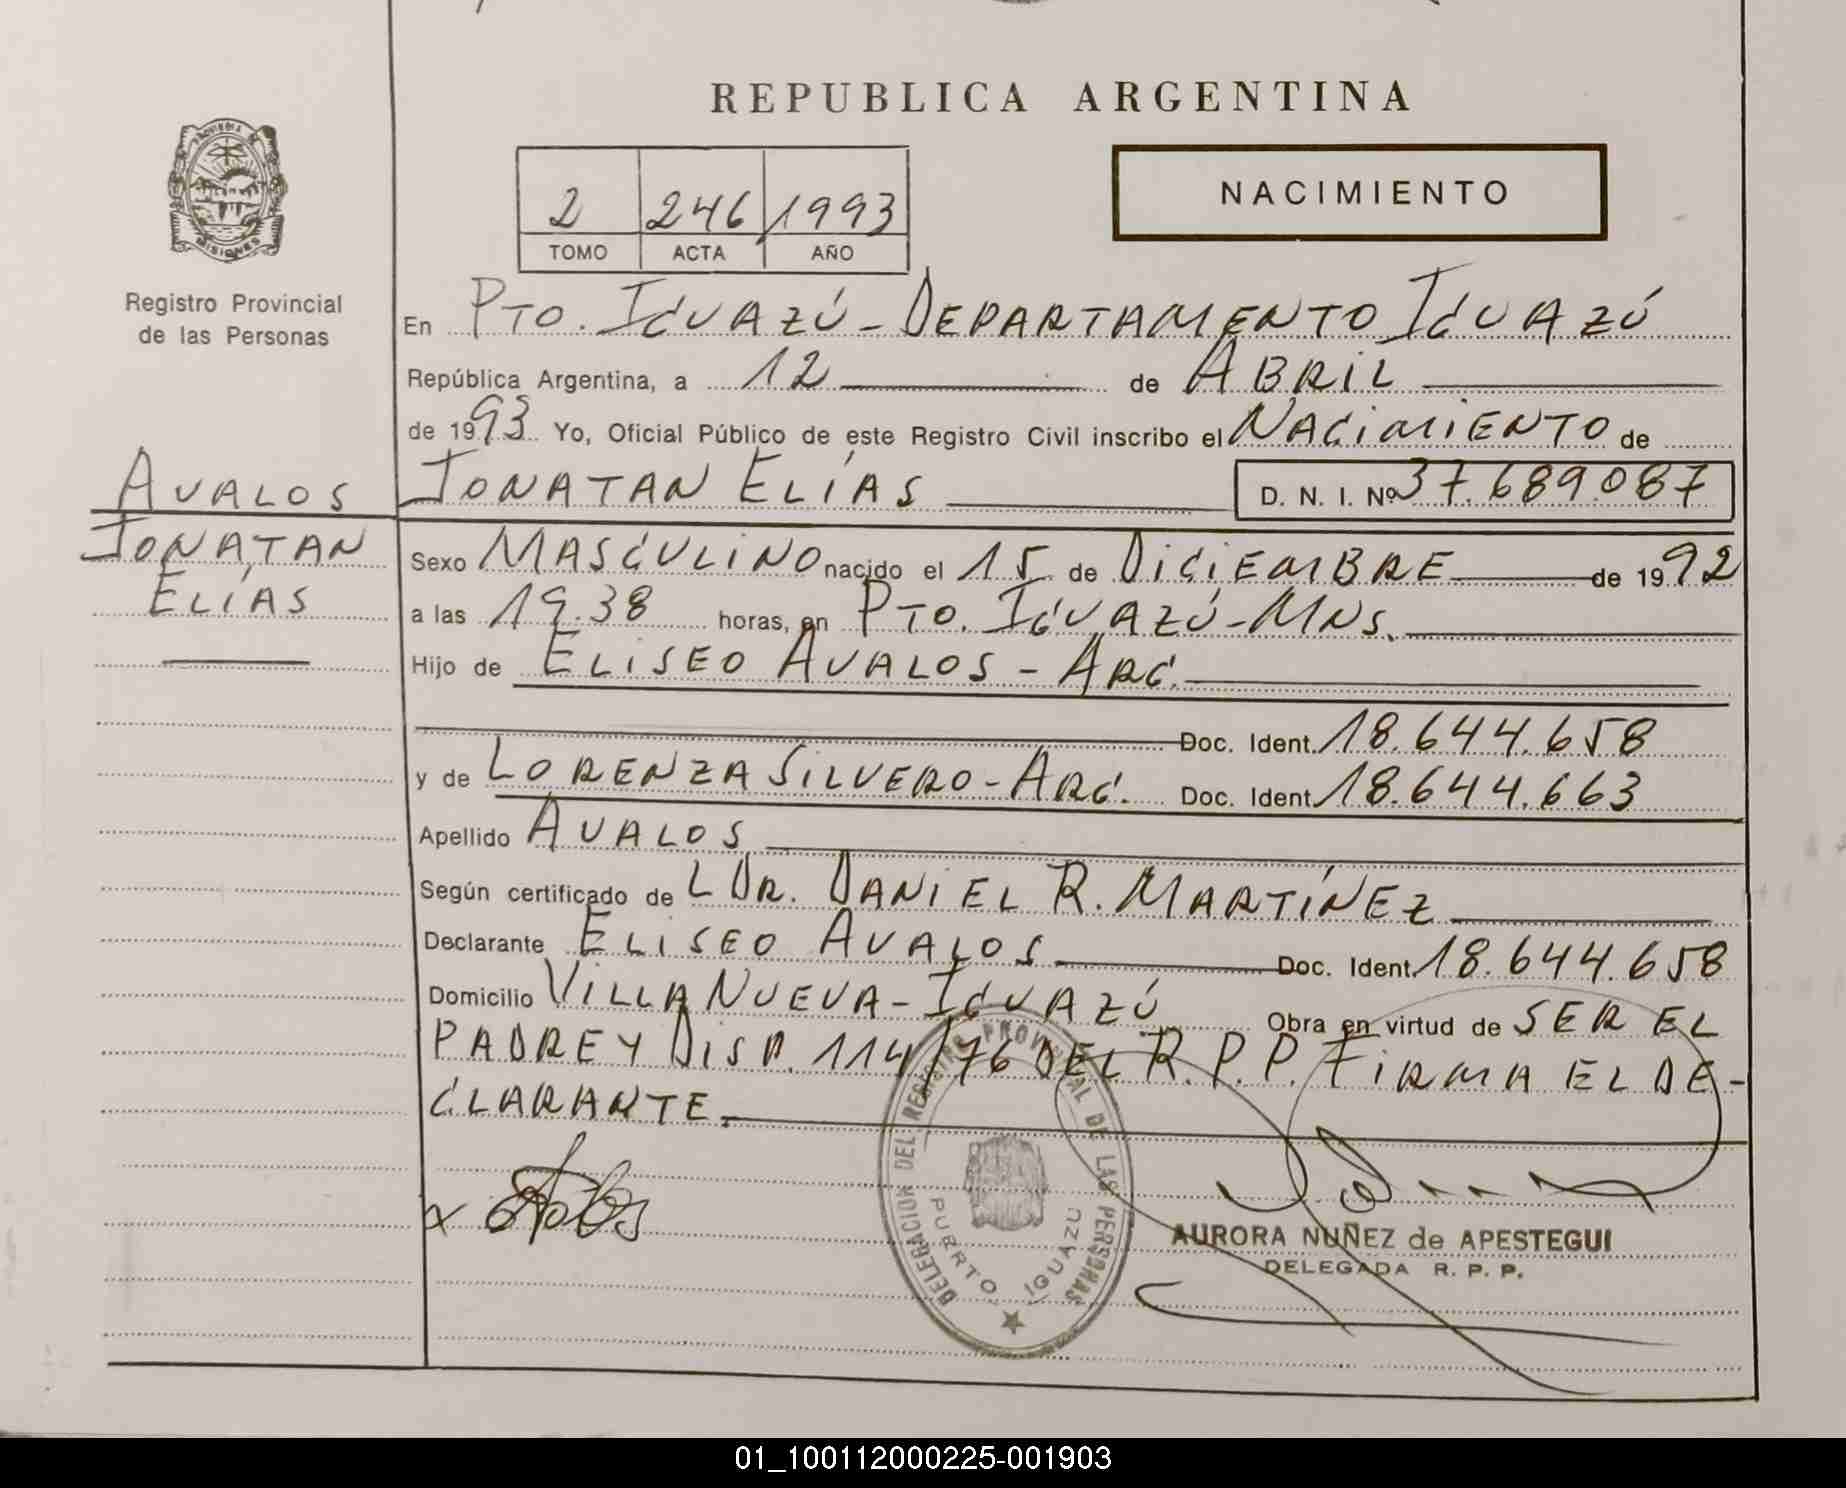 REPUBLICA ARGENTINA
PROVINCIA DE MISIONES
Registro Provincial
de las Personas
2 246 1993
TOMO ACTA AÑO
NACIMIENTO
En PTO. IGUAZÚ - DEPARTAMENTO IGUAZÚ
República Argentina, a 12 de ABRIL
de 1993 Yo, Oficial Público de este Registro Civil inscribo el NACIMIENTO de
AVALOS
JONATAN
ELÍAS
JONATAN ELÍAS D. N. I. Nº 37.689.087
Sexo MASCULINO nacido el 15 de DICIEMBRE de 1992
a las 19.38 horas, en PTO. IGUAZÚ - MNS.
Hijo de ELISEO AVALOS - ARG.
Doc. Ident. 18.644.658
y de LORENZA SILVERO - ARG. Doc. Ident. 18.644.663
Apellido AVALOS
Según certificado de L DR. DANIEL R. MARTÍNEZ
Declarante ELISEO AVALOS Doc. Ident. 18.644.658
Domicilio VILLA NUEVA - IGUAZÚ Obra en virtud de SER EL
PADRE Y DISP. 114/76 DEL R. P. P. FIRMA EL DE-
CLARANTE.
DELEGACION DEL REGISTRO PROVINCIAL DE LAS PERSONAS
PUERTO IGUAZU
AURORA NUÑEZ de APESTEGUI
DELEGADA R. P. P.
01_100112000225-001903